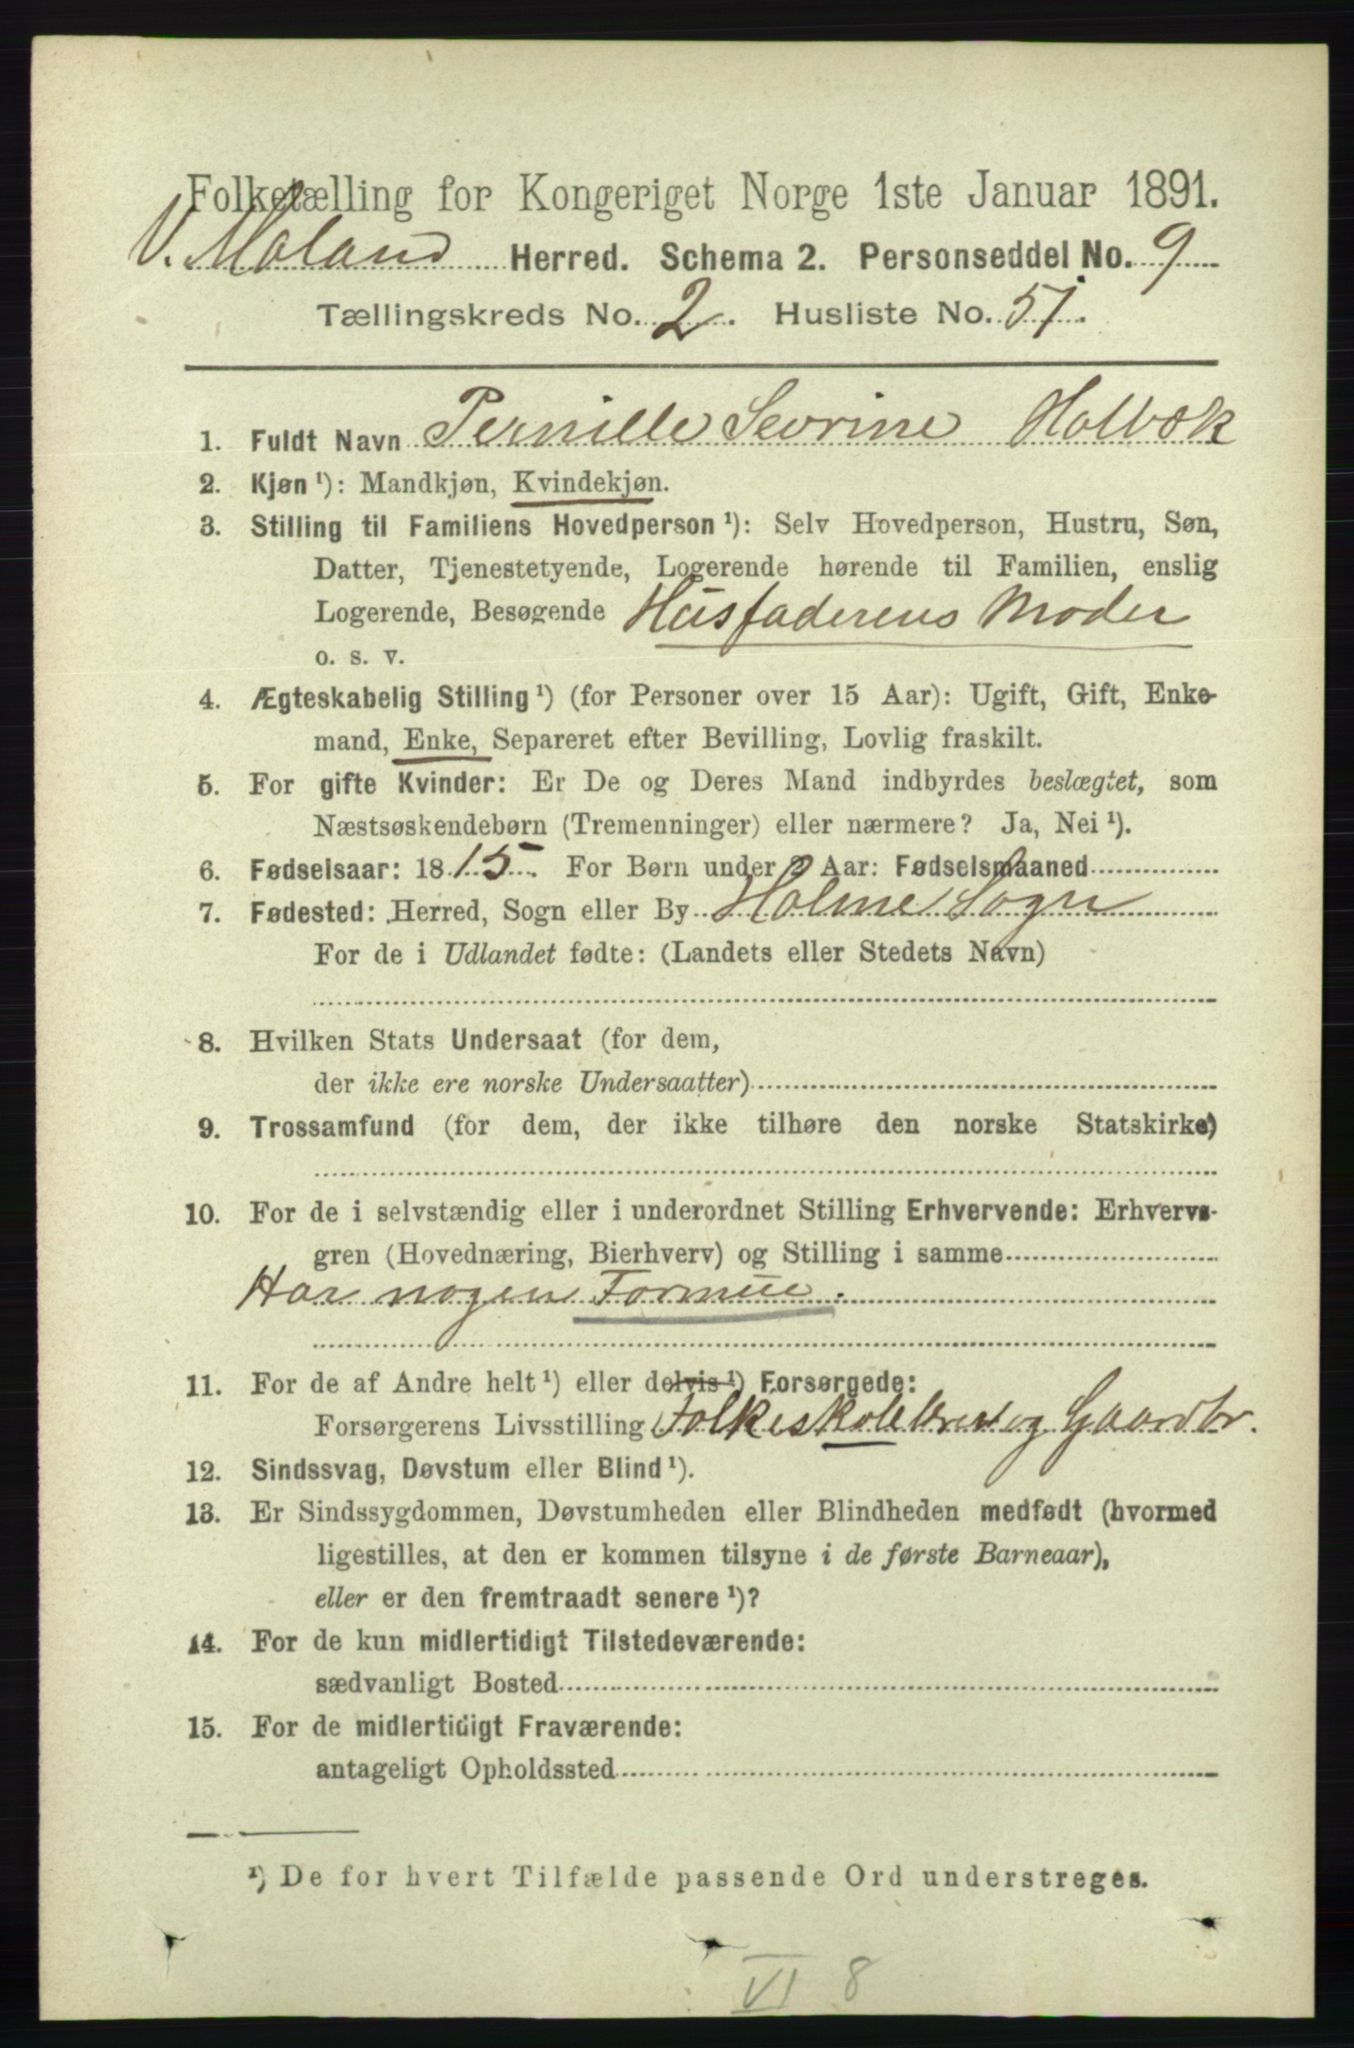 Folketælling for Kongeriget Norge 1ste Januar 1891.
V. Moland Herred. Schema 2. Personseddel No. 9
Tællingskreds No. 2. Husliste No. 51.
1. Fuldt Navn Pernille Sevrine Holbæk
2. Kjøn ¹): Mandkjøn, Kvindekjøn.
3. Stilling til Familiens Hovedperson ¹): Selv Hovedperson, Hustru, Søn,
Datter, Tjenestetyende, Logerende hørende til Familien, enslig
Logerende, Besøgende Husfaderens Moder
o. s. v.
4. Ægteskabelig Stilling ¹) (for Personer over 15 Aar): Ugift, Gift, Enke-
mand, Enke, Separeret efter Bevilling, Lovlig fraskilt.
5. For gifte Kvinder: Er De og Deres Mand indbyrdes beslægtet, som
Næstsøskendebørn (Tremenninger) eller nærmere? Ja, Nei ¹).
6. Fødselsaar: 1815. For Børn under 2 Aar: Fødselsmaaned
7. Fødested: Herred, Sogn eller By Holme Sogn
For de i Udlandet fødte: (Landets eller Stedets Navn)
8. Hvilken Stats Undersaat (for dem,
der ikke ere norske Undersaatter)
9. Trossamfund (for dem, der ikke tilhøre den norske Statskirke)
10. For de i selvstændig eller i underordnet Stilling Erhvervende: Erhvervs-
gren (Hovednæring, Bierhverv) og Stilling i samme
Har nogen Formue.
11. For de af Andre helt ¹) eller delvis ¹) Forsørgede:
Forsørgerens Livsstilling Folkeskolelærer og Gaardbr.
12. Sindssvag, Døvstum eller Blind ¹).
13. Er Sindssygdommen, Døvstumheden eller Blindheden medfødt (hvormed
ligestilles, at den er kommen tilsyne i de første Barneaar),
eller er den fremtraadt senere ¹)?
14. For de kun midlertidigt Tilstedeværende:
sædvanligt Bosted
15. For de midlertidigt Fraværende:
antageligt Opholdssted
¹) De for hvert Tilfælde passende Ord understreges.
VI 8